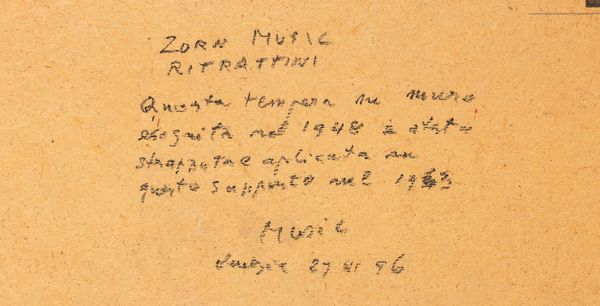 ZORN MUSIC
RITRATTINI
Questa tempera su muro
eseguita nel 1948 è stata
strappata e aplicata su
questo supporto nel
Music
27 XI 96